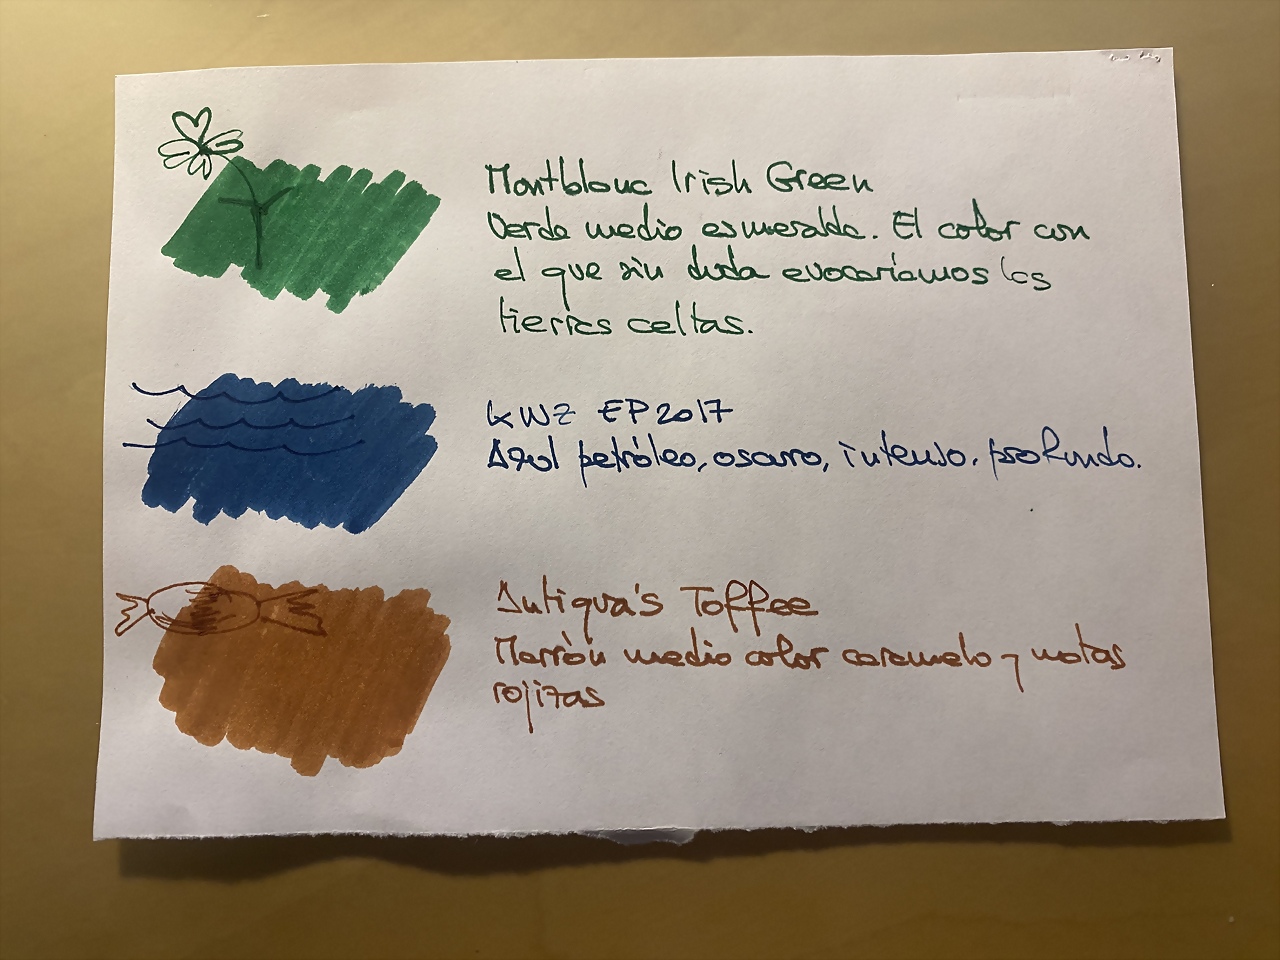 Montblanc Irish Green
Verde medio esmeralda. El color con
el que sin duda evocaríamos las
tierras celtas.
KWZ EP2017
Azul petróleo, oscuro, intenso, profundo.
Antiqua's Toffee
Marrón medio color caramelo y notas
rojizas